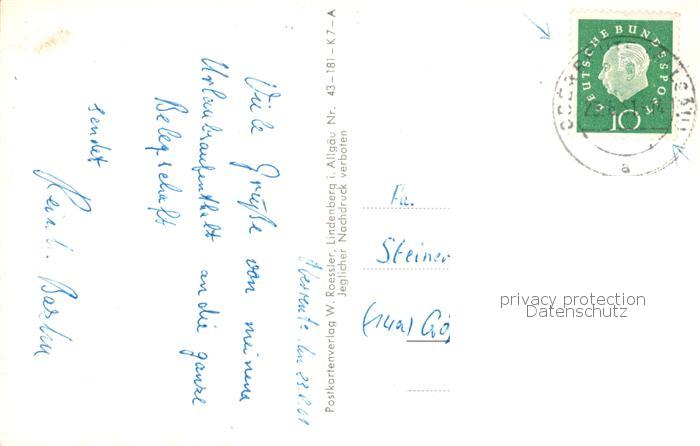 den 23.8.61
Viele Grüße von meinem
Urlaubsaufenthalt an die ganze
Belegschaft
sendet
Postkartenverlag W. Roessler, Lindenberg i. Allgäu Nr. 43-181-K7-A
Jeglicher Nachdruck verboten
DEUTSCHE BUNDESPOST
10
a
Fa.
Steiner
(14a) Gö
privacy protection
Datenschutz